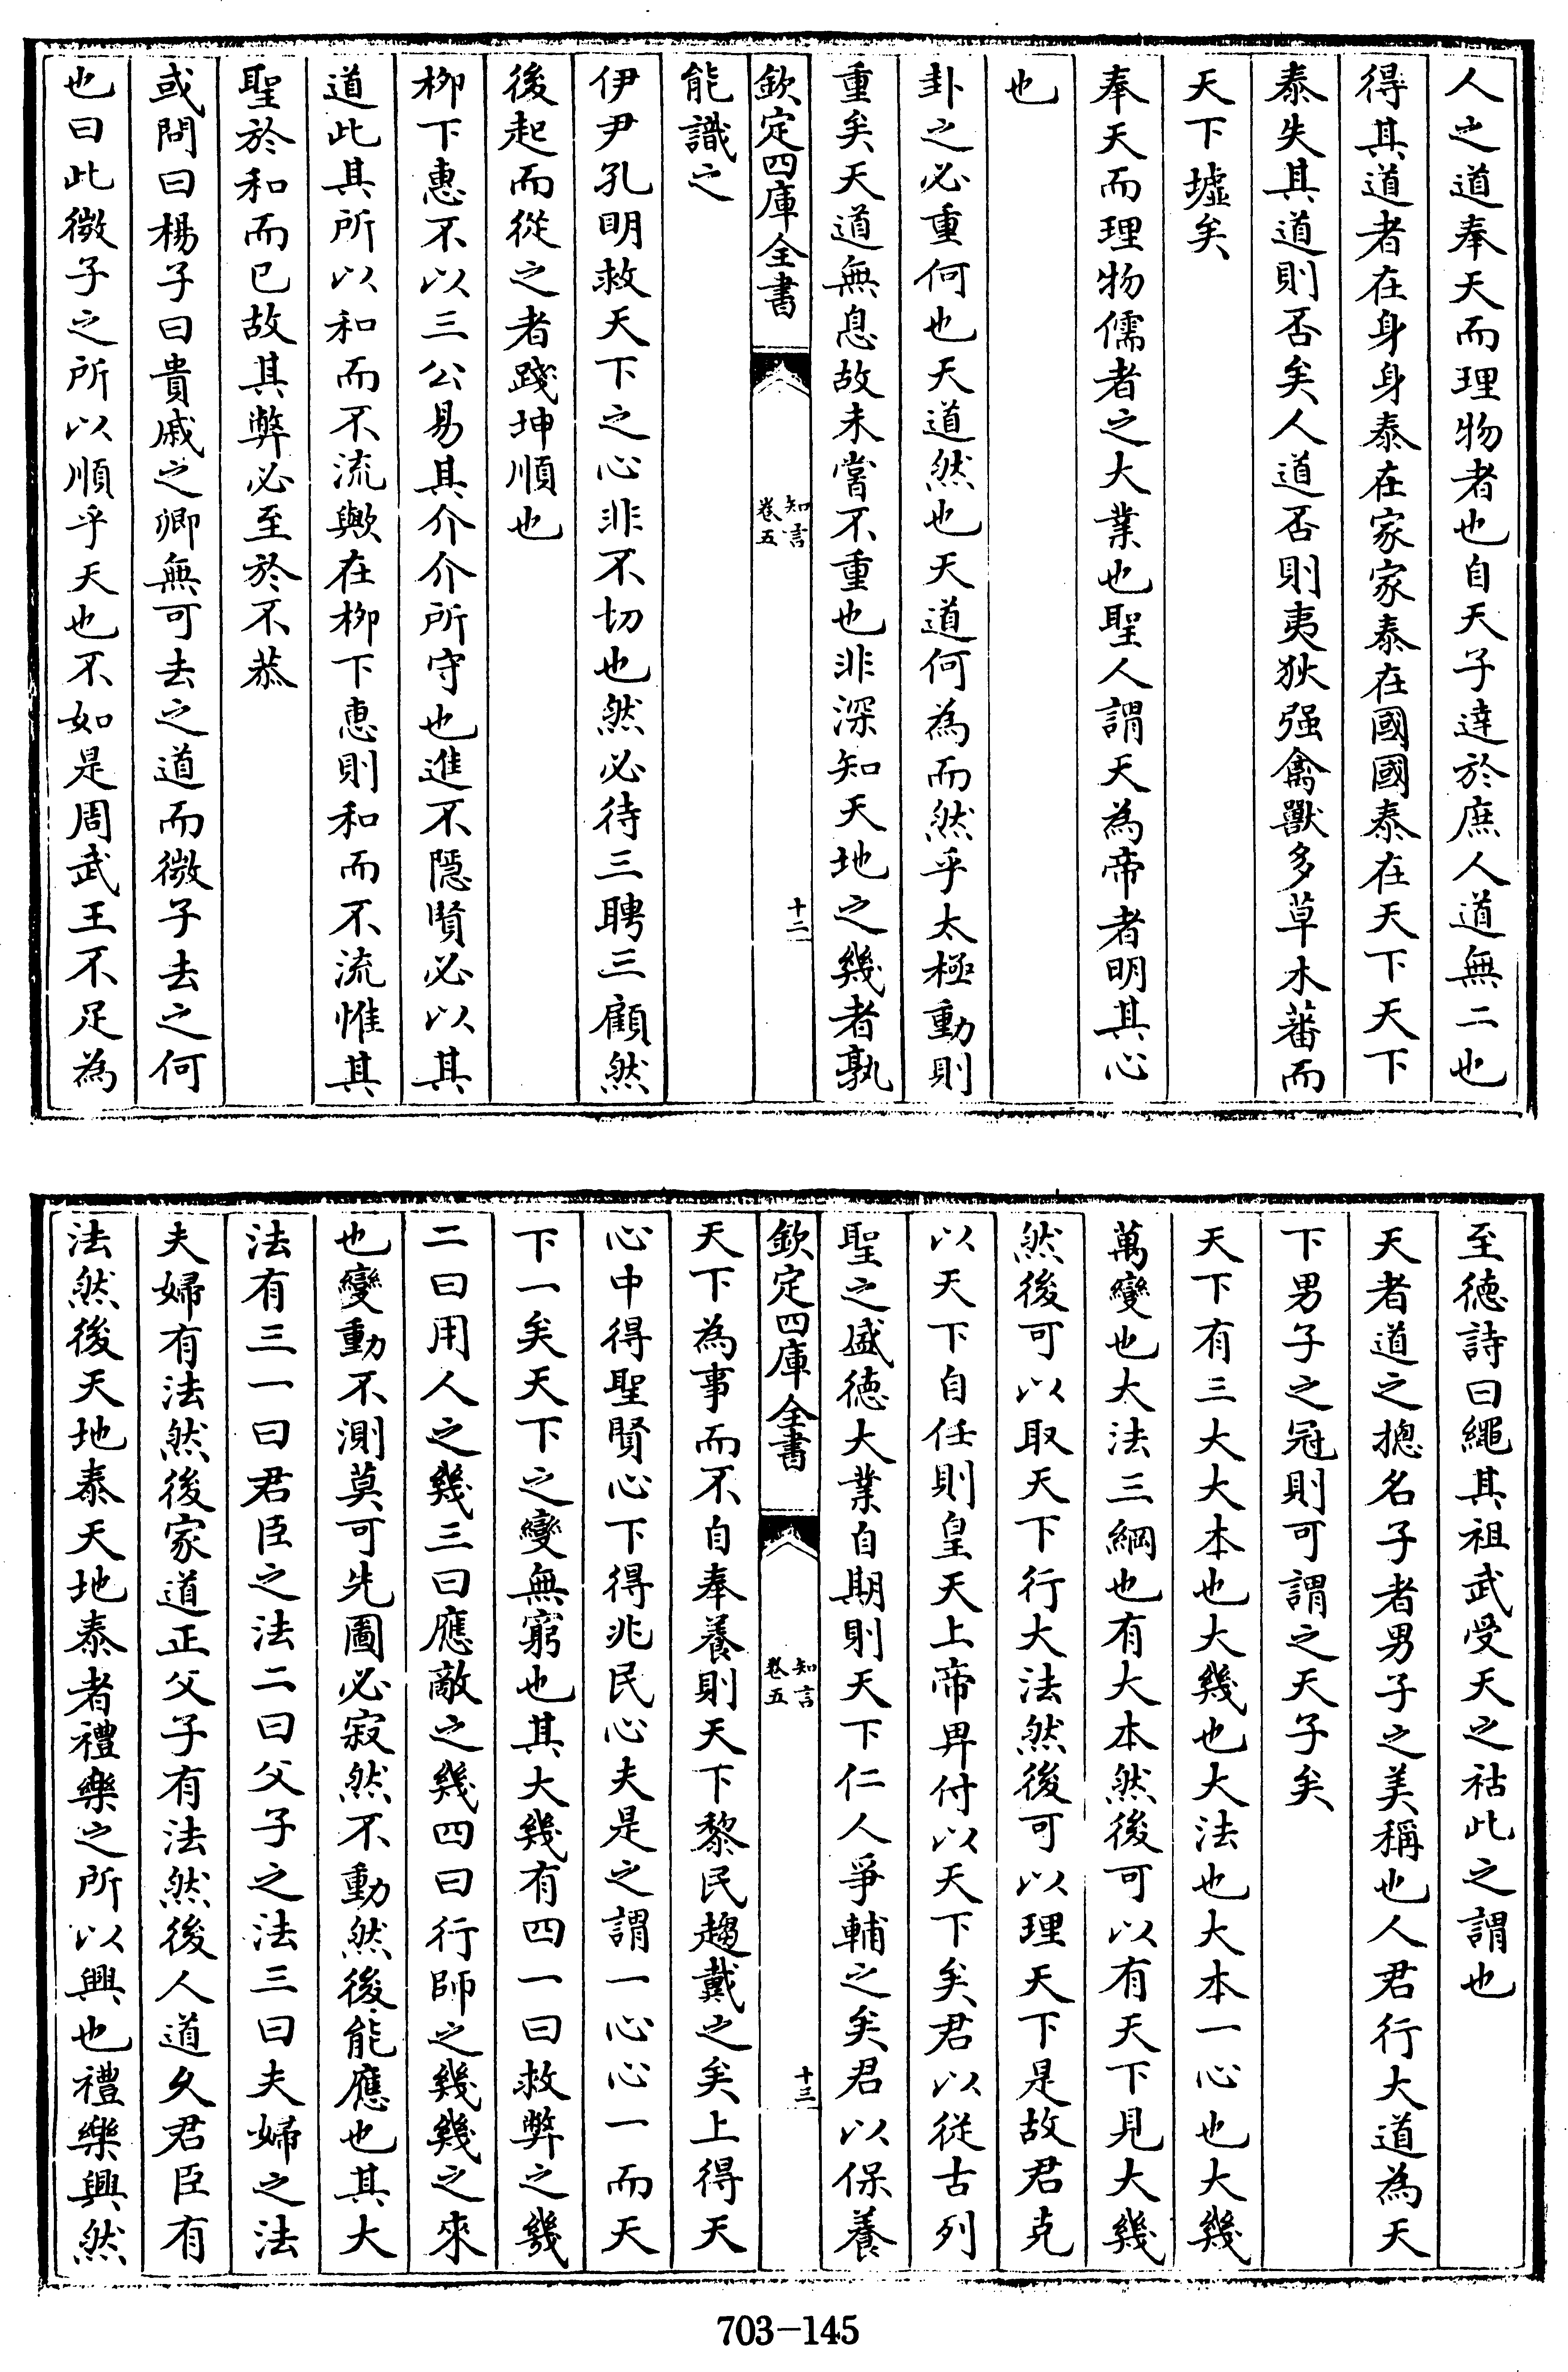 人之道奉天而理物者也自天子達於庶人道無二也
得其道者在身身泰在家家泰在國國泰在天下天下
泰失其道則否矣人道否則夷狄强禽獸多草木蕃而
天下墟矣
奉天而理物儒者之大業也聖人謂天為帝者明其心
也
卦之必重何也天道然也天道何為而然乎太極動則
重矣天道無息故未嘗不重也非深知天地之幾者孰
欽定四庫全書
知言
卷五
十二
能識之
伊尹孔明救天下之心非不切也然必待三聘三顧然
後起而從之者踐坤順也
柳下惠不以三公易其介介所守也進不隠賢必以其
道此其所以和而不流歟在柳下惠則和而不流惟其
聖於和而已故其弊必至於不恭
或問曰楊子曰貴戚之卿無可去之道而微子去之何
也曰此微子之所以順乎天也不如是周武王不足為
至德詩曰繩其祖武受天之祜此之謂也
天者道之摠名子者男子之美稱也人君行大道為天
下男子之冠則可謂之天子矣
天下有三大大本也大幾也大法也大本一心也大幾
萬變也大法三綱也有大本然後可以有天下見大幾
然後可以取天下行大法然後可以理天下是故君克
以天下自任則皇天上帝畀付以天下矣君以從古列
聖之盛德大業自期則天下仁人爭輔之矣君以保養
欽定四庫全書
知言
卷五
十三
天下為事而不自奉養則天下黎民趨戴之矣上得天
心中得聖賢心下得兆民心夫是之謂一心心一而天
下一矣天下之變無窮也其大幾有四一曰救弊之幾
二曰用人之幾三曰應敵之幾四曰行師之幾幾之來
也變動不測莫可先圖必寂然不動然後能應也其大
法有三一曰君臣之法二曰父子之法三曰夫婦之法
夫婦有法然後家道正父子有法然後人道久君臣有
法然後天地泰天地泰者禮樂之所以興也禮樂興然
703-145